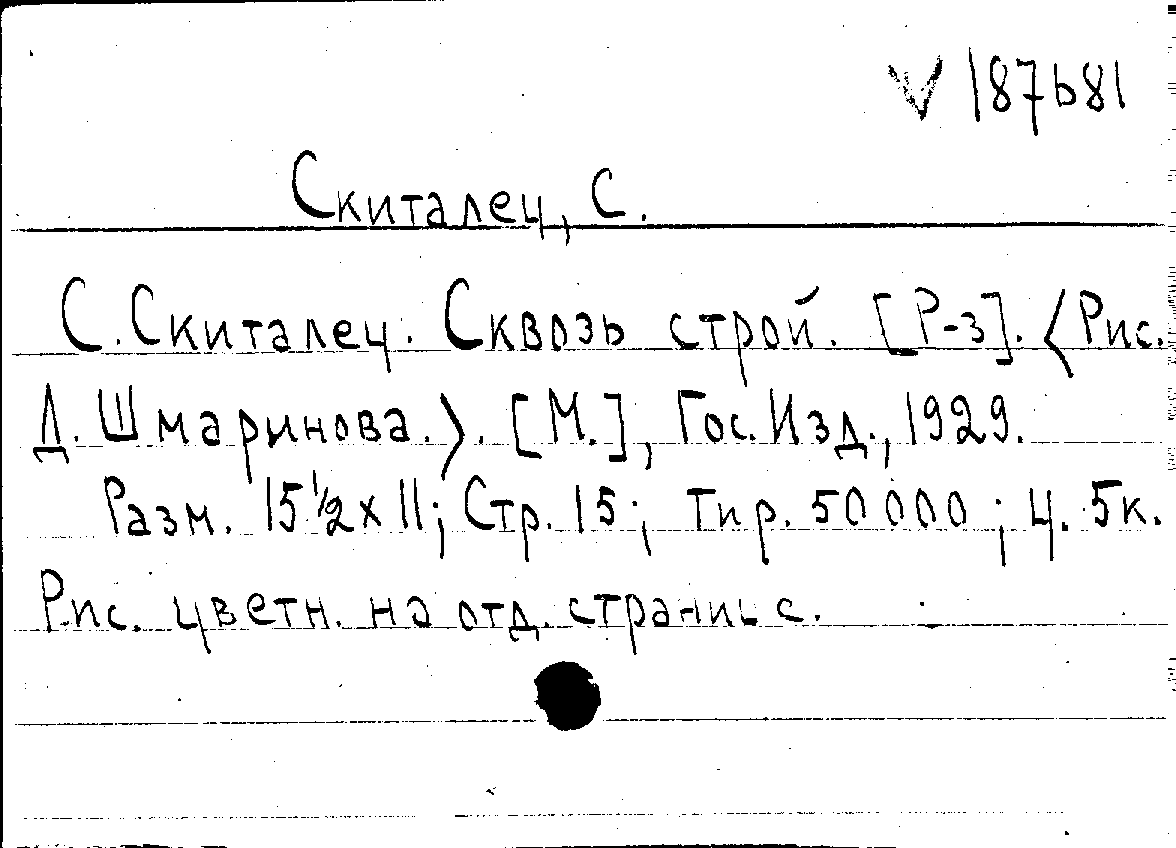 V 187681
Скиталец, С.
С. Скиталец. Сквозь строй. [Р-з]. <Рис.
Д. Шмаринова.>. [М.], Гос. Изд., 1929.
Разм. 15 1/2 x 11; Стр. 15; Тир. 50 000; Ц. 5к.
Рис. цветн. на отд. страниц с.